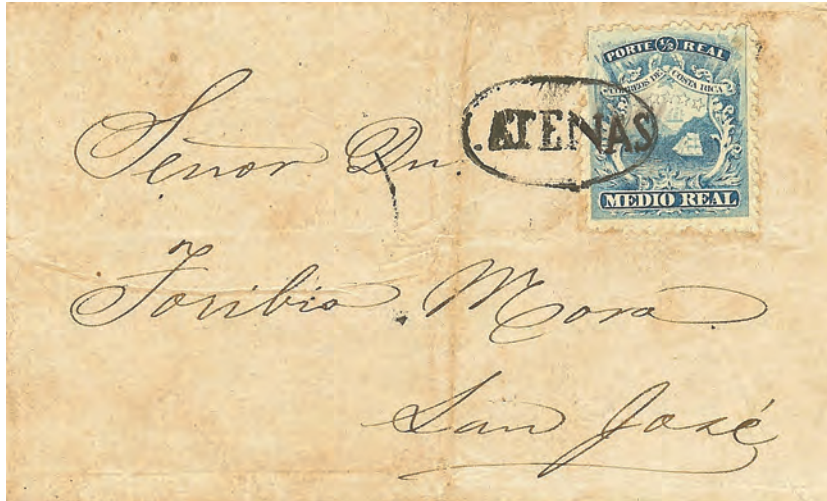 PORTE ½ REAL
CORREOS DE COSTA RICA
ATENAS
MEDIO REAL
Señor Dn.
Toribio Mora
San José